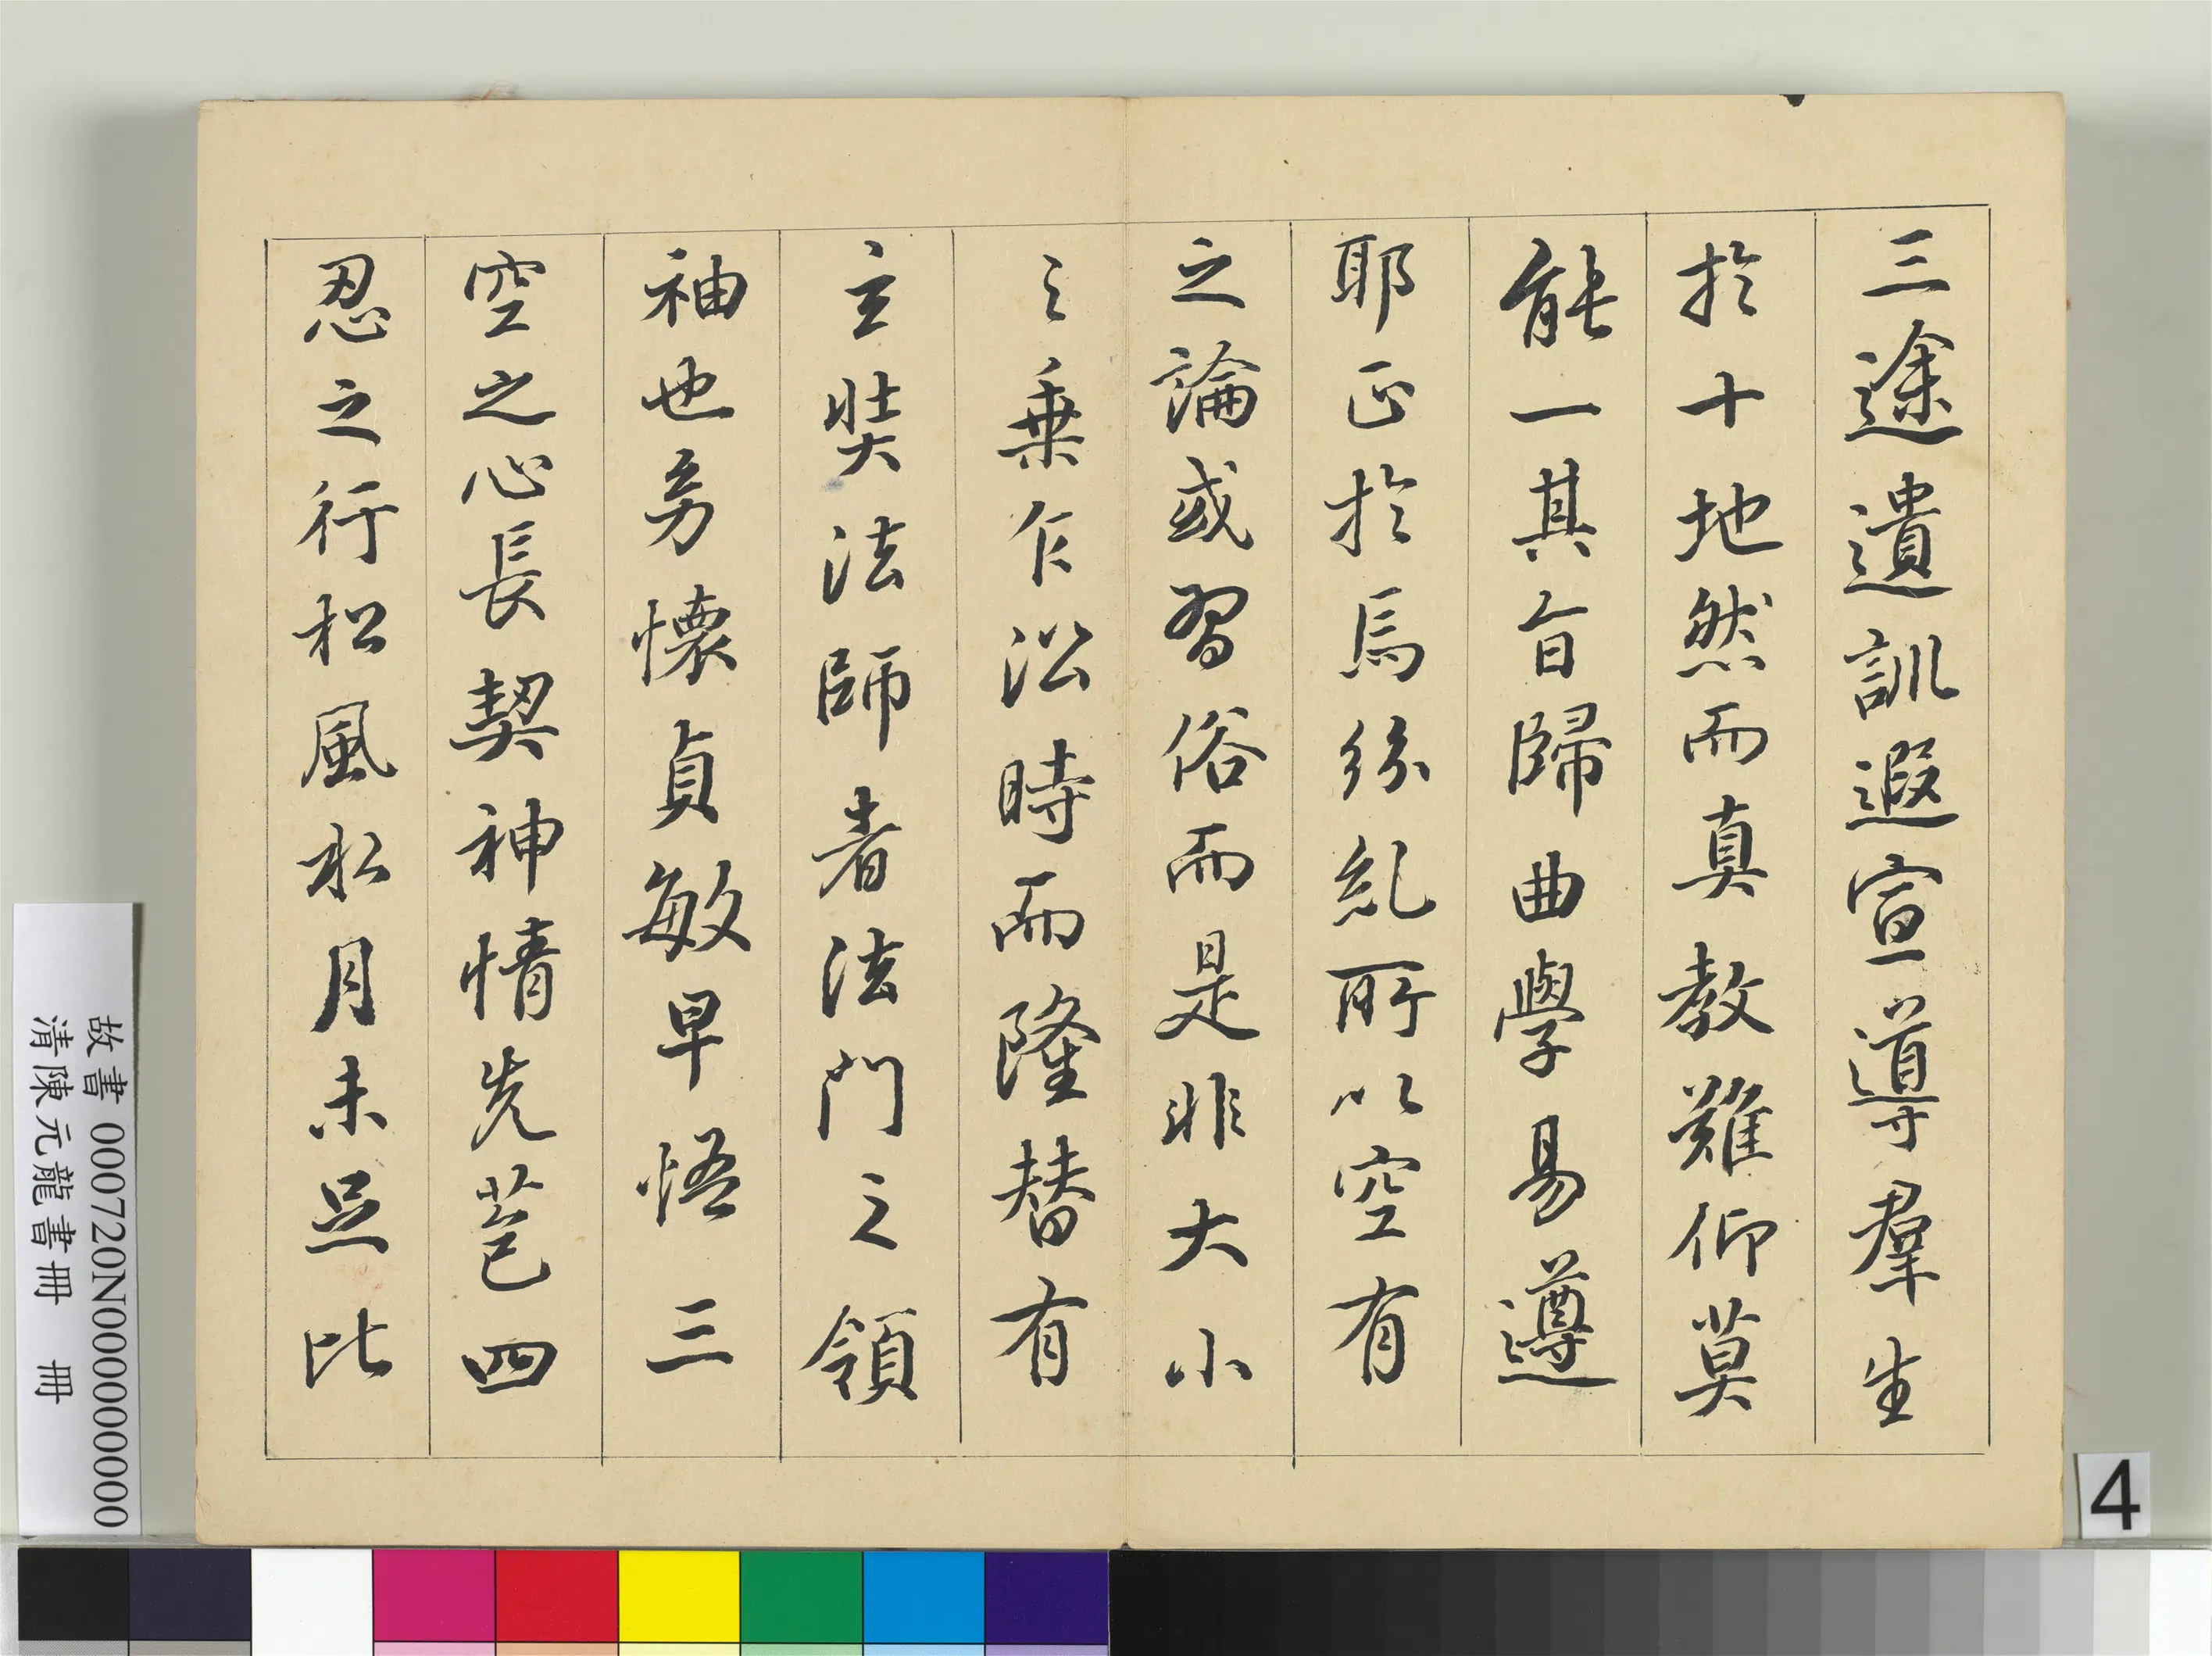 三途遺訓遐宣導羣生
於十地然而真教難仰莫
能一其旨歸曲學易遵
耶正於焉紛糺所以空有
之論或習俗而是非大小
之乗乍沿時而隆替有
玄奘法師者法門之領
袖也㓜懷貞敏早悟三
空之心長契神情先苞四
忍之行松風水月未足比
故書 000720N000000000
清陳元龍書冊 冊
4